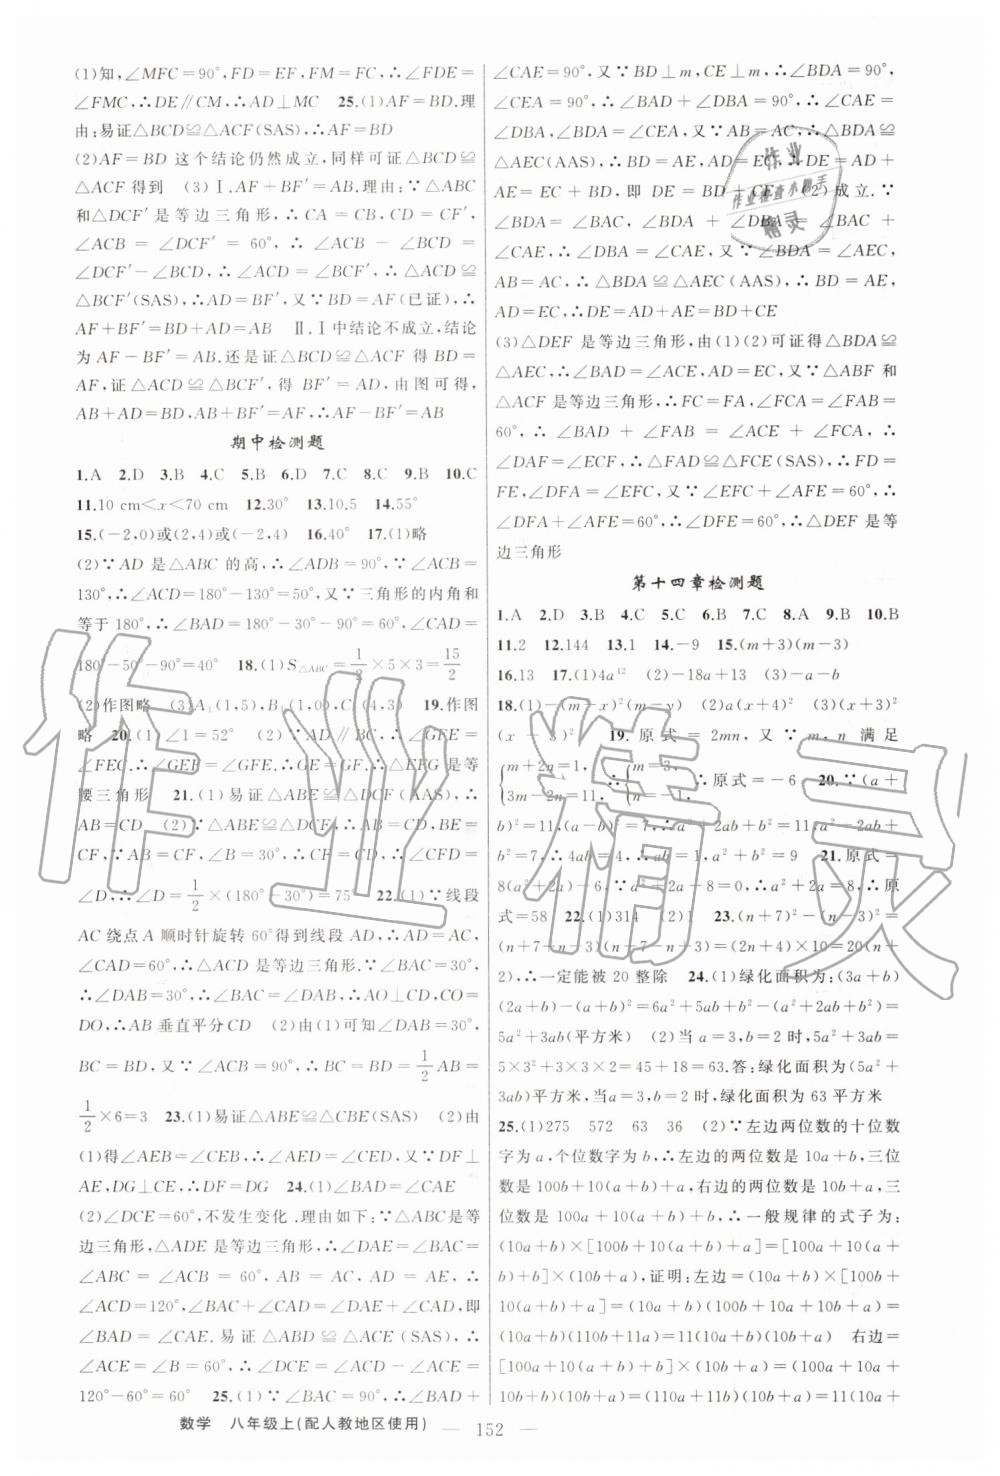 (1)知,∠MFC=90°,FD=EF,FM=FC,∴∠FDE=
∠FMC,∴DE∥CM,∴AD⊥MC 25.(1)AF=BD.理
由:易证△BCD≌△ACF(SAS),∴AF=BD
(2)AF=BD 这个结论仍然成立,同样可证△BCD≌
△ACF得到 (3)Ⅰ.AF+BF′=AB.理由:∵△ABC
和△DCF′是等边三角形,∴CA=CB,CD=CF′,
∠ACB=∠DCF′=60°,∴∠ACB-∠BCD=
∠DCF′-∠BCD,∴∠ACD=∠BCF′,∴△ACD≌
△BCF′(SAS),∴AD=BF′,又∵BD=AF(已证),∴
AF+BF′=BD+AD=AB Ⅱ.Ⅰ中结论不成立,结论
为 AF-BF′=AB.还是证△BCD≌△ACF 得 BD=
AF,证△ACD≌△BCF′,得 BF′=AD,由图可得,
AB+AD=BD,AB+BF′=AF,∴AF-BF′=AB
期中检测题
1.A 2.D 3.B 4.C 5.B 6.D 7.C 8.C 9.B 10.C
11.10 cm<x<70 cm 12.30° 13.10.5 14.55°
15.(-2,0)或(2,4)或(-2,4) 16.40° 17.(1)略
(2)∵AD 是△ABC 的高,∴∠ADB=90°,∵∠ACB=
130°,∴∠ACD=180°-130°=50°,又∵三角形的内角和
等于180°,∴∠BAD=180°-30°-90°=60°,∠CAD=
180°-50°-90°=40° 18.(1)S△ABC=1/2×5×3=15/2
(2)作图略 (3)A₁(1,5),B₁(1,0),C₁(4,3) 19.作图
略 20.(1)∠1=52° (2)∵AD∥BC,∴∠GFE=
∠FEC,∴∠GEF=∠GFE,∴GE=GF,∴△EFG是等
腰三角形 21.(1)易证△ABE≌△DCF(AAS),∴
AB=CD (2)∵△ABE≌△DCF,∴AB=CD,BE=
CF,∵AB=CF,∠B=30°,∴CD=CF,∴∠CFD=
∠D,∴∠D=1/2×(180°-30°)=75° 22.(1)∵线段
AC绕点A顺时针旋转60°得到线段AD,∴AD=AC,
∠CAD=60°,∴△ACD 是等边三角形.∵∠CAB=30°,
∴∠DAB=30°,∴∠BAC=∠DAB,∴AO⊥CD,CO=
DO,∴AB垂直平分CD (2)由(1)可知∠DAB=30°,
BC=BD,又∵∠ACB=90°,∴BC=BD=1/2AB=
1/2×6=3 23.(1)易证△ABE≌△CBE(SAS) (2)由
(1)得∠AEB=∠CEB,∴∠AED=∠CED,又∵DF⊥
AE,DG⊥CE,∴DF=DG 24.(1)∠BAD=∠CAE
(2)∠DCE=60°,不发生变化.理由如下:∵△ABC是等
边三角形,△ADE是等边三角形,∴∠DAE=∠BAC=
∠ABC=∠ACB=60°,AB=AC,AD=AE,∴
∠ACD=120°,∠BAC+∠CAD=∠DAE+∠CAD,即
∠BAD=∠CAE.易证△ABD≌△ACE(SAS),∴
∠ACE=∠B=60°,∴∠DCE=∠ACD-∠ACE=
120°-60°=60° 25.(1)∵∠BAC=90°,∴∠BAD+
∠CAE=90°,又∵BD⊥m,CE⊥m,∴∠BDA=90°,
∠CEA=90°,∴∠BAD+∠DBA=90°,∴∠CAE=
∠DBA,∠BDA=∠CEA,又∵AB=AC,∴△BDA≌
△AEC(AAS),∴BD=AE,AD=EC,∴DE=AD+
AE=EC+BD,即 DE=BD+CE (2)成立.∵
∠BDA=∠BAC,∴∠DBA+∠BDA=∠BAC+
∠CAE,∴∠DBA=∠CAE,又∵∠BDA=∠AEC,
AB=AC,∴△BDA≌△AEC(AAS),∴BD=AE,
AD=EC,∴DE=AD+AE=BD+CE
(3)△DEF是等边三角形,由(1)(2)可证得△BDA≌
△AEC,∴∠BAD=∠ACE,AD=EC,又∵△ABF 和
△ACF是等边三角形,∴FC=FA,∠FCA=∠FAB=
60°,∴∠BAD+∠FAB=∠ACE+∠FCA,∴
∠DAF=∠ECF,∴△FAD≌△FCE(SAS),∴FD=
FE,∠DFA=∠EFC,又∵∠EFC+∠AFE=60°,∴
∠DFA+∠AFE=60°,∴∠DFE=60°,∴△DEF是等
边三角形
第十四章检测题
1.A 2.D 3.B 4.C 5.C 6.B 7.C 8.A 9.B 10.B
11.2 12.144 13.1 14.-9 15.(m+3)(m-3)
16.13 17.(1)4a¹² (2)-18a+13 (3)-a-b
18.(1)-(m-x)²(m-y) (2)a(x+4)² (3)(x+3)²
(x-3)² 19.原式=2mn,又∵m,n 满足
{m+2n=1, 3m-2n=11,∴{m=3, n=-1,∴原式=-6 20.∵(a+
b)²=11,(a-b)²=7,∴a²+2ab+b²=11,a²-2ab+
b²=7,∴4ab=4,∴ab=1,a²+b²=9 21.原式=
8(a²+2a)-6,∵a²+2a-8=0,∴a²+2a=8,∴原
式=58 22.(1)314 (2)1 23.(n+7)²-(n-3)²=
(n+7+n-3)(n+7-n+3)=(2n+4)×10=20(n+
2),∴一定能被20整除 24.(1)绿化面积为:(3a+b)
(2a+b)-(a+b)²=6a²+5ab+b²-(a²+2ab+b²)=
5a²+3ab(平方米) (2)当a=3,b=2时,5a²+3ab=
5×3²+3×3×2=45+18=63.答:绿化面积为(5a²+
3ab)平方米,当a=3,b=2时,绿化面积为63平方米
25.(1)275 572 63 36 (2)∵左边两位数的十位数
字为a,个位数字为b,∴左边的两位数是10a+b,三位
数是100b+10(a+b)+a,右边的两位数是10b+a,三
位数是100a+10(a+b)+b,∴一般规律的式子为:
(10a+b)×[100b+10(a+b)+a]=[100a+10(a+
b)+b]×(10b+a),证明:左边=(10a+b)×[100b+
10(a+b)+a]=(10a+b)(100b+10a+10b+a)=
(10a+b)(110b+11a)=11(10a+b)(10b+a) 右边=
[100a+10(a+b)+b]×(10b+a)=(100a+10a+
10b+b)(10b+a)=(110a+11b)(10b+a)=11(10a+
数学 八年级上(配人教地区使用) — 152 —
作业
作业检查小助手
精灵
作业精灵